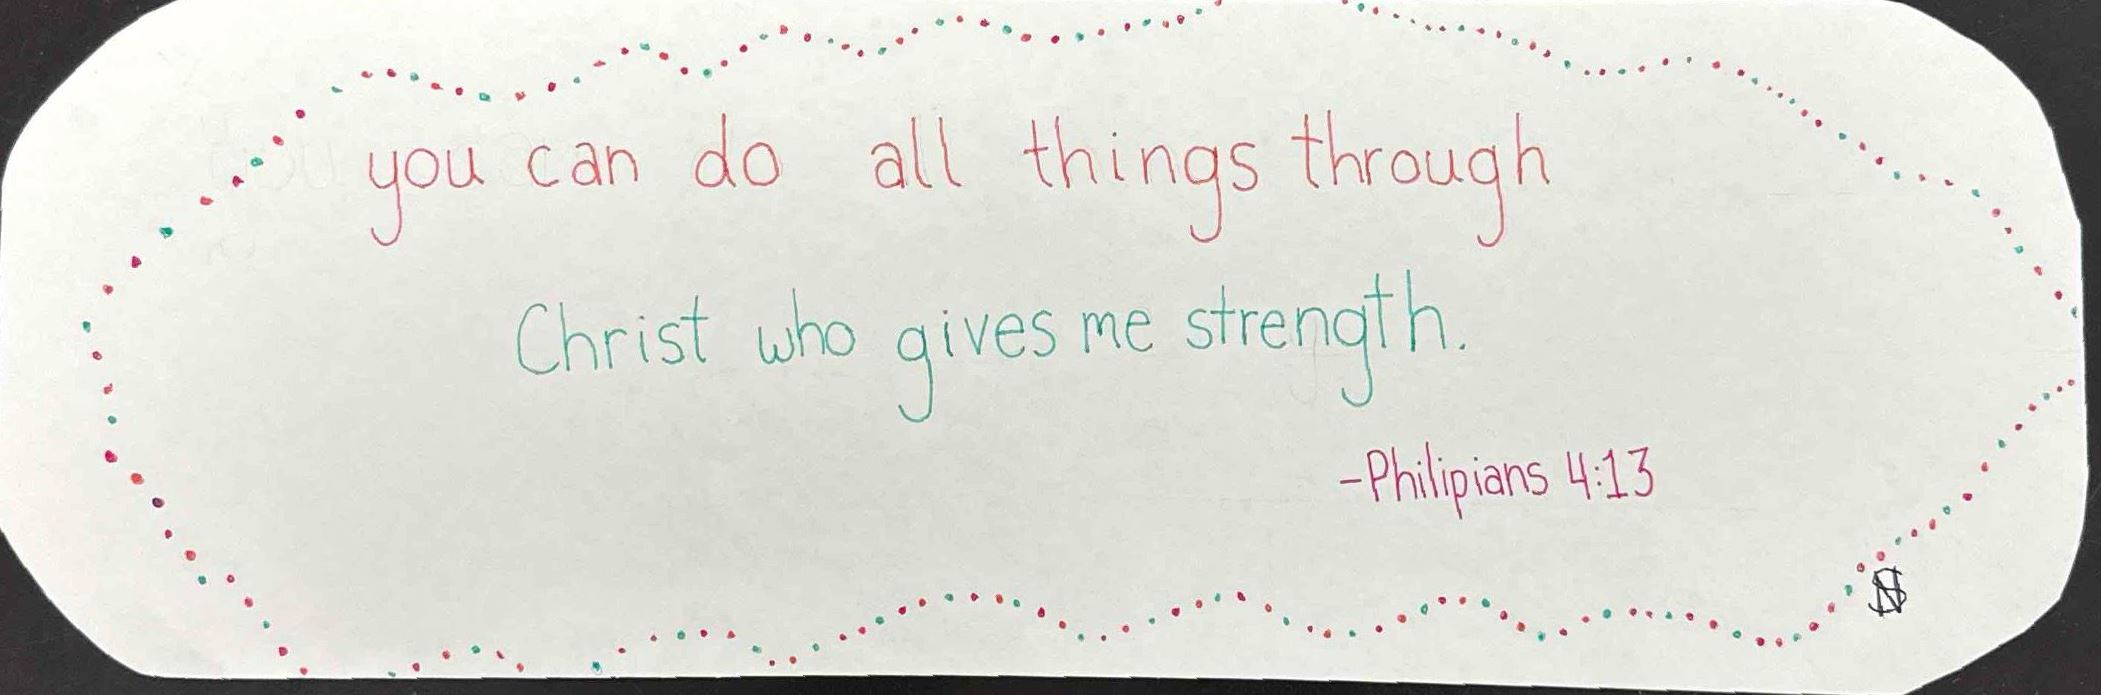 you can do all things through
Christ who gives me strength.
-Philipians 4:13